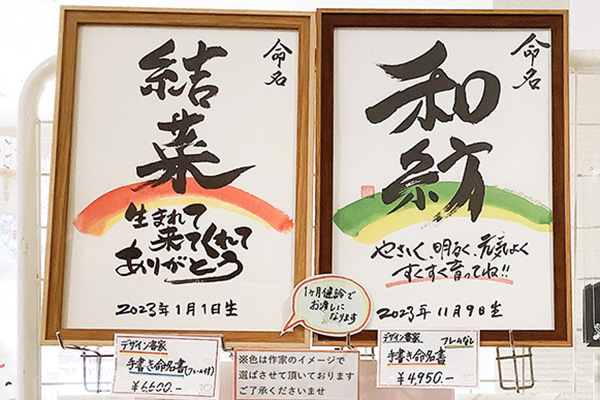 命名
結菜
生まれて
来てくれて
ありがとう
2023年1月1日生
命名
和紡
やさしく、明るく、元気よく
すくすく育ってね!!
2023年11月9日生
1ヶ月健診で
お渡しに
なります
デザイン書家
手書き命名書(フレーム付)
¥6,600.-
※色は作家のイメージで
選ばさせて頂いております
ご了承くださいませ
デザイン書家 フレームなし
手書き命名書
¥4,950.-